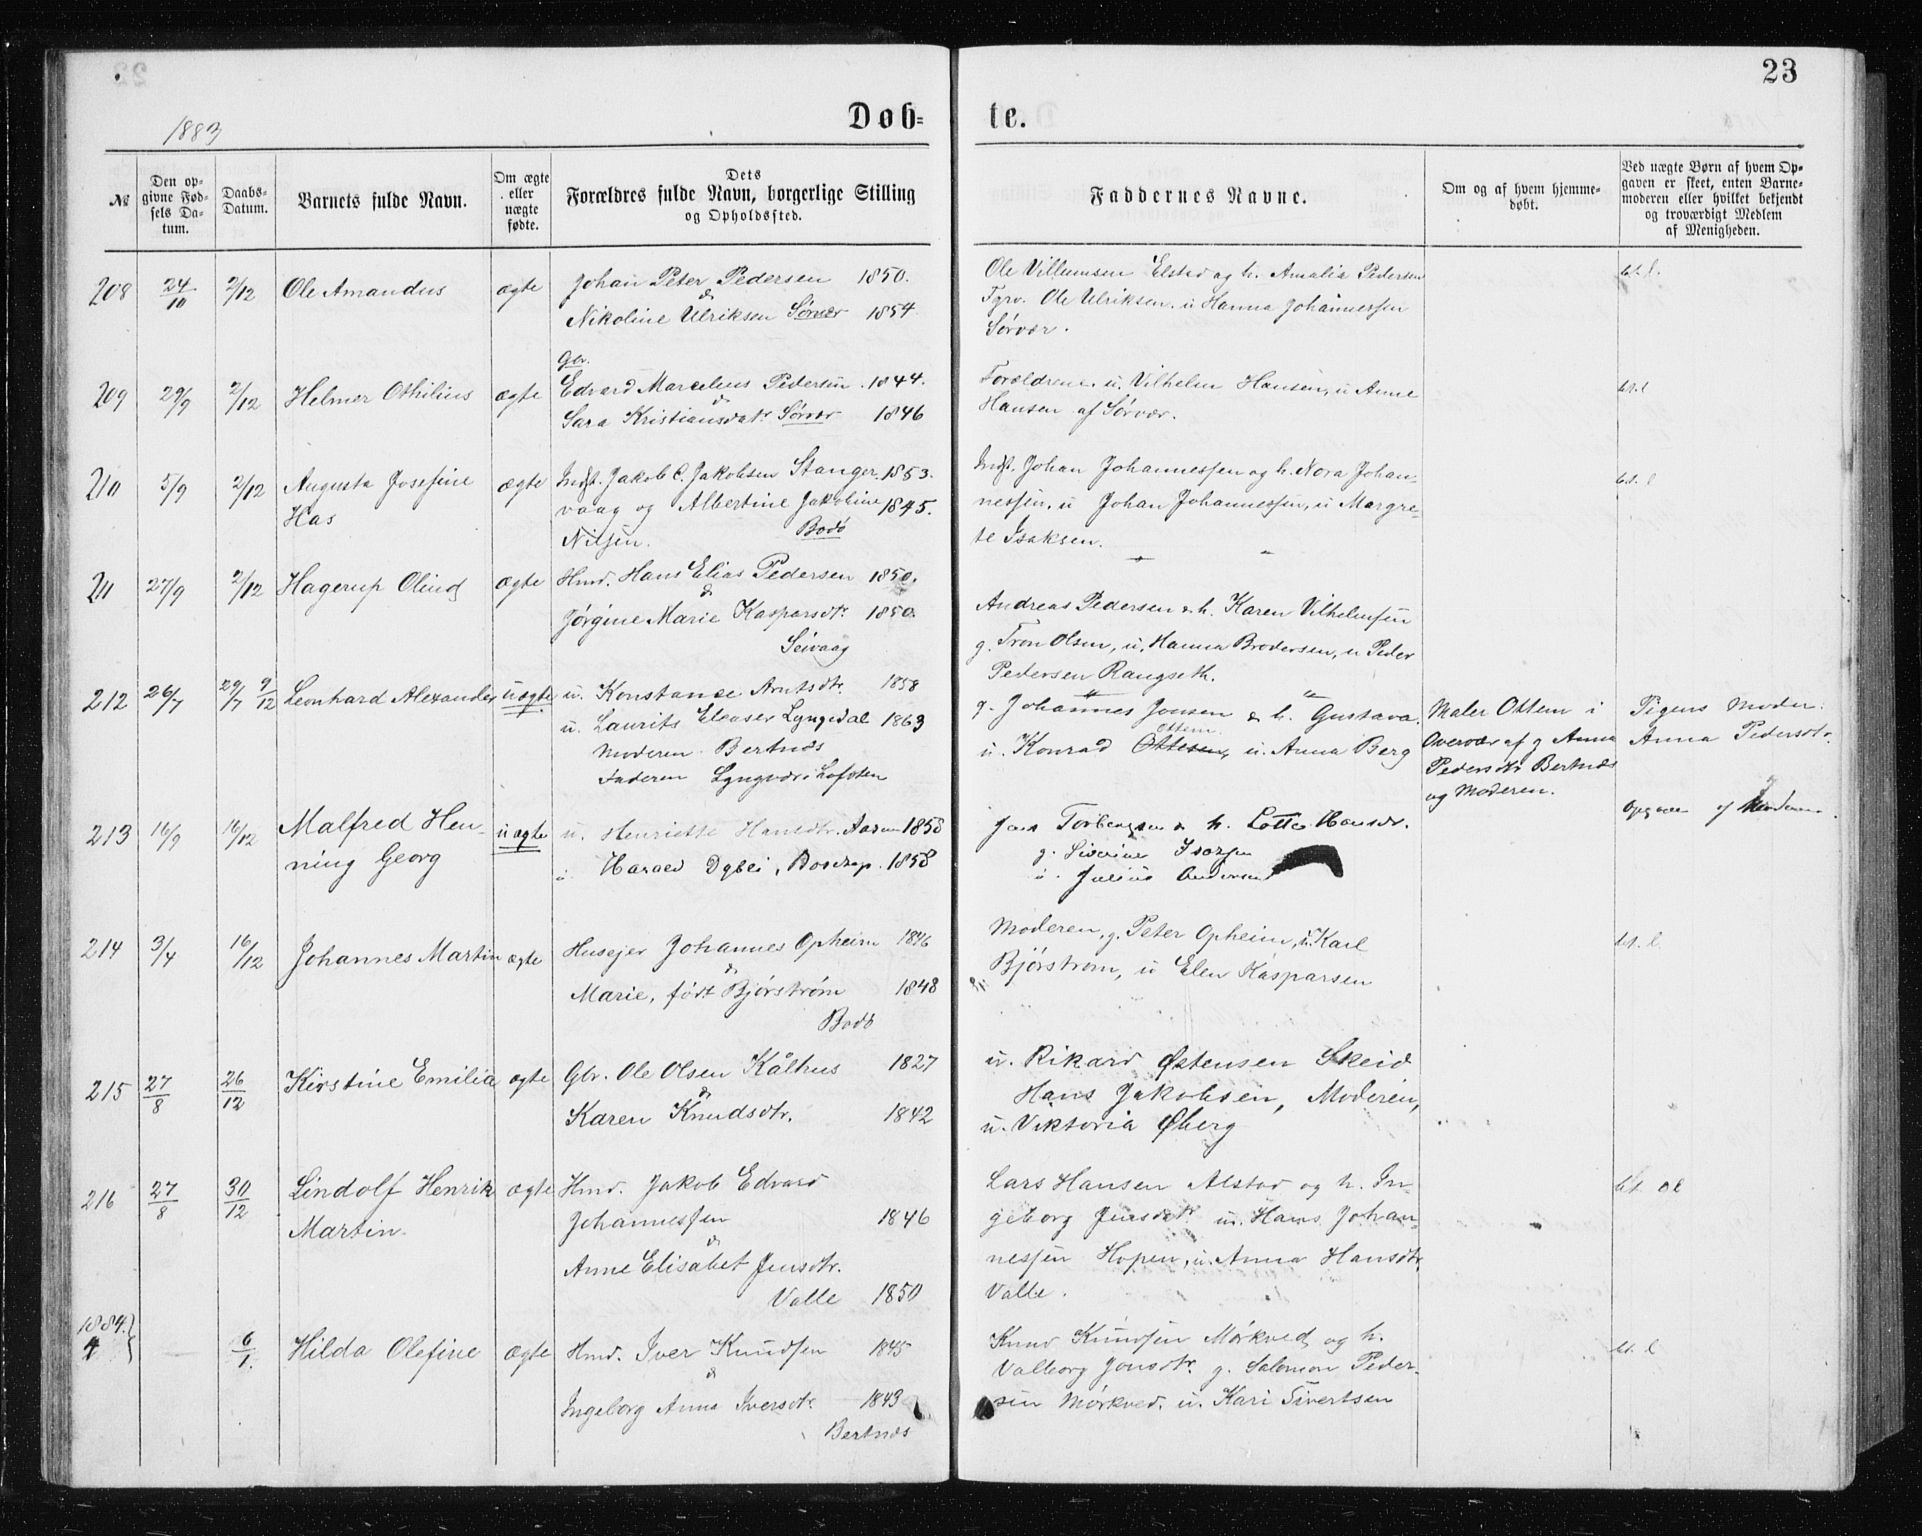 23
1883
Døb- te.
№
Den opgivne Fødsels Datum.
Daabs-Datum.
Barnets fulde Navn.
Om ægte eller uægte fødte.
Dets
Forældres fulde Navn, borgerlige Stilling
og Opholdssted.
Faddernes Navne.
Om og af hvem hjemmedøbt.
Ved uægte Børn af hvem Opgaven er skeet, enten Barnemoderen eller hvilket bekjendt og troværdigt Medlem af Menigheden.
208 24/10 2/12 Ole Amandus ægte Johan Peter Pedersen 1850.
&
Nikoline Ulriksen Sørvær 1854
Ole Villumsen Elstad og h. Amalia Pedersen
Tgrv. Ole Ulriksen. u Hanna Johannessen
Sørvær.
209 29/9 2/12 Helmer Othilius ægte Gbr.
Edvard Marcelius Pedersen 1844.
&
Sara Kristiansdatr Sørvær 1846
Forældrene. u. Vilhelm Hansen, u Anne
Hansen af Sørvær.
210 5/9 2/12 Augusta Josefine
Has
ægte Indst. Jakob C. Jakobsen Stanger 1853.
vaag og Albertine Jakobine 1845.
Nilsen. Bodø
Indst. Johan Johannessen og h. Nora Johan-
nessen, u Johan Johannessen, u Margre-
te Isaksen.
211 27/9 2/12 Hagerup Olind ægte Hmd. Hans Elias Pedersen 1850.
&
Jørgine Marie Kasparsdtr. 1850.
Seivaag
Andreas Pedersen & h. Karen Vilhelmsen
g. Tron Olsen, u, Hanna Brodersen, u Peder
Pedersen Rangseth.
212 26/7 29/7 9/12 Leonhard Alexander uægte u. Konstance Arntsdtr. 1858
u. Laurits Eleaser Lyngedal 1863
Moderen Bertnæs
Faderen Lyngvær i Lofoten
g. Johannes Jonsen & h. Gustava
u. Konrad Ottesen, Ottem u. Anna Berg
Maler Ottem i
Overvær af g Anna
Pedersdtr Bertnæs
og Moderen.
Pigens Moder
Anna Pedersdtr.
213 16/9 16/12 Malfred Hen-
ning Georg
uægte u. Henriette Hansdtr. 1858
u. Harald Bostrap. 1858
Jens Torbergsen & h. Lotte Hansdr.
g. Siverine
u. Julius Andersen
Opgave af Moderen.
214 3/4 16/12 Johannes Martin ægte Husejer Johannes Opheim 1846
&
Marie, født Bjørstrøm 1848
Bodø
Moderen, g. Peter Opheim, u. Karl
Bjørstrøm, u Elen Kasparsen
215 27/8 26/12 Kirstine Emilia ægte Gbr. Ole Olsen Kålhus 1827
&
Karen Knudsdtr. 1842
u. Rikard Østensen Skeid
Hans Jakobsen, Moderen,
u. Viktoria Øberg
216 27/8 30/12 Lindolf Henrik
Martin.
ægte Hmd. Jakob Edvard
Johannessen 1846
&
Anne Elisabet Jensdtr.
Valle 1850
Lars Hansen Alstad og h. In-
geborg Jensdtr u. Hans Johan-
nessen Hopen, u. Anna Hansdtr.
Valle.
1884.
4 6/1. Hilda Olefine ægte Hmd. Iver Knudsen 1845
&
Ingeborg Anna Iversdtr. 1843
Bertnæs
Knud Knudsen Mørkved og h.
Valborg Jonsdtr. g. Salomon Peder-
sen Mørkved. u. Kari Sivertsen